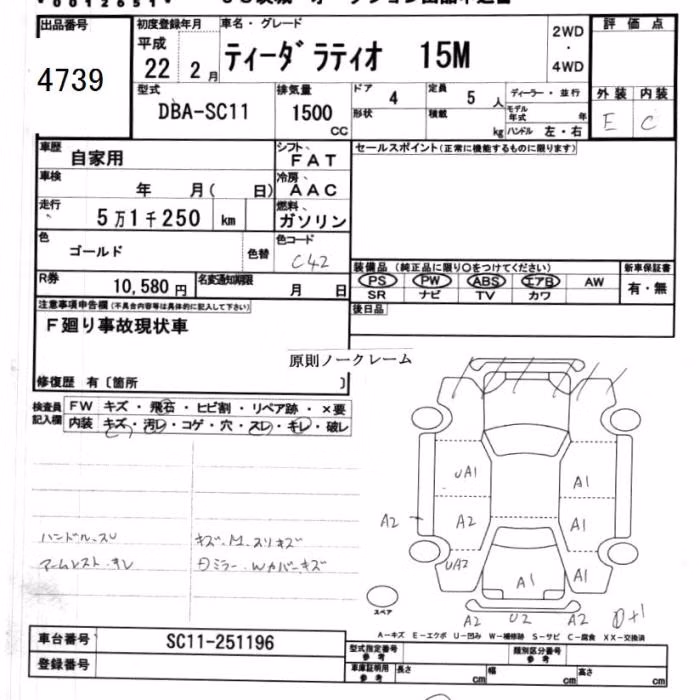 出品番号
4739
初度登録年月
平成
22 2月
車名・グレード
ティーダ ラティオ 15M
2WD
・
4WD
評価点
型式
DBA-SC11
排気量
1500
CC
ドア 4
定員 5 人
形状
積載 kg
ディーラー・並行
モデル年式 年
ハンドル 左・右
外装 内装
E C
車歴 自家用
シフト FAT
車検 年 月( 日)
冷房 AAC
走行 5万1千250 km
燃料 ガソリン
色 ゴールド 色替
色コード C42
R券 10,580円
名変通知期限 月 日
セールスポイント(正常に機能するものに限ります)
装備品 (純正品に限り○をつけてください)
PS PW ABS エアB AW
SR ナビ TV カワ
新車保証書
有・無
後日品
注意事項申告欄(不具合内容等は具体的に記入して下さい)
F廻り事故現状車
原則ノークレーム
修復歴 有〔箇所 〕
検査員記入欄
FW キズ・飛石・ヒビ割・リペア跡・×要
内装 キズ・汚レ・コゲ・穴・スレ・キレ・破レ
ハンドル.スレ
アームレスト.キレ
キズ.M.スリキズ
UA1
A1
A2
A2
A1
UA2
A1
A1
A2 U2 A2
スペア
A-キズ E-エクボ U-凹み W-補修跡 S-サビ C-腐食 XX-交換済
車台番号 SC11-251196
登録番号
型式指定番号 参考
類別区分番号 参考
車庫証明用 参考
長さ cm
幅 cm
高さ cm